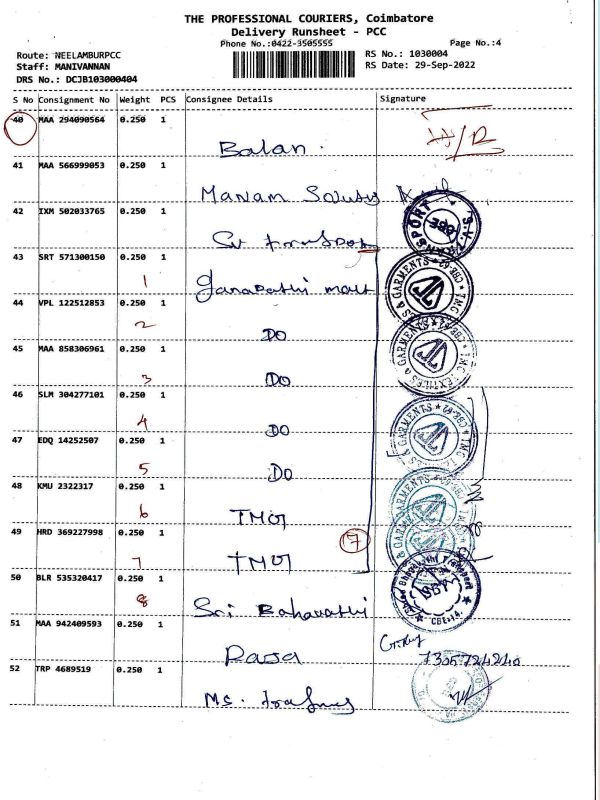 THE PROFESSIONAL COURIERS, Coimbatore
Delivery Runsheet - PCC
Phone No.:0422-3505555 Page No.:4
Route: NEELAMBURPCC RS No.: 1030004
Staff: MANIVANNAN RS Date: 29-Sep-2022
DRS No.: DCJB103000404
S No Consignment No Weight PCS Consignee Details Signature
40 MAA 294090564 0.250 1
Balan.
41 MAA 566999053 0.250 1
Manam
42 IXM 502033765 0.250 1
43 SRT 571300150 0.250 1
1 Ganapathi mall
44 VPL 122512853 0.250 1
2 DO
45 MAA 858306961 0.250 1
3 DO
46 SLM 304277101 0.250 1
4 DO
47 EDQ 14252507 0.250 1
5 DO
48 KMU 2322317 0.250 1
6 TMG
49 HRD 369227998 0.250 1 17
7 TMG
50 BLR 535320417 0.250 1
8 Sri Baharathi
51 MAA 942409593 0.250 1
7305724240
52 TRP 4689519 0.250 1
Ms.